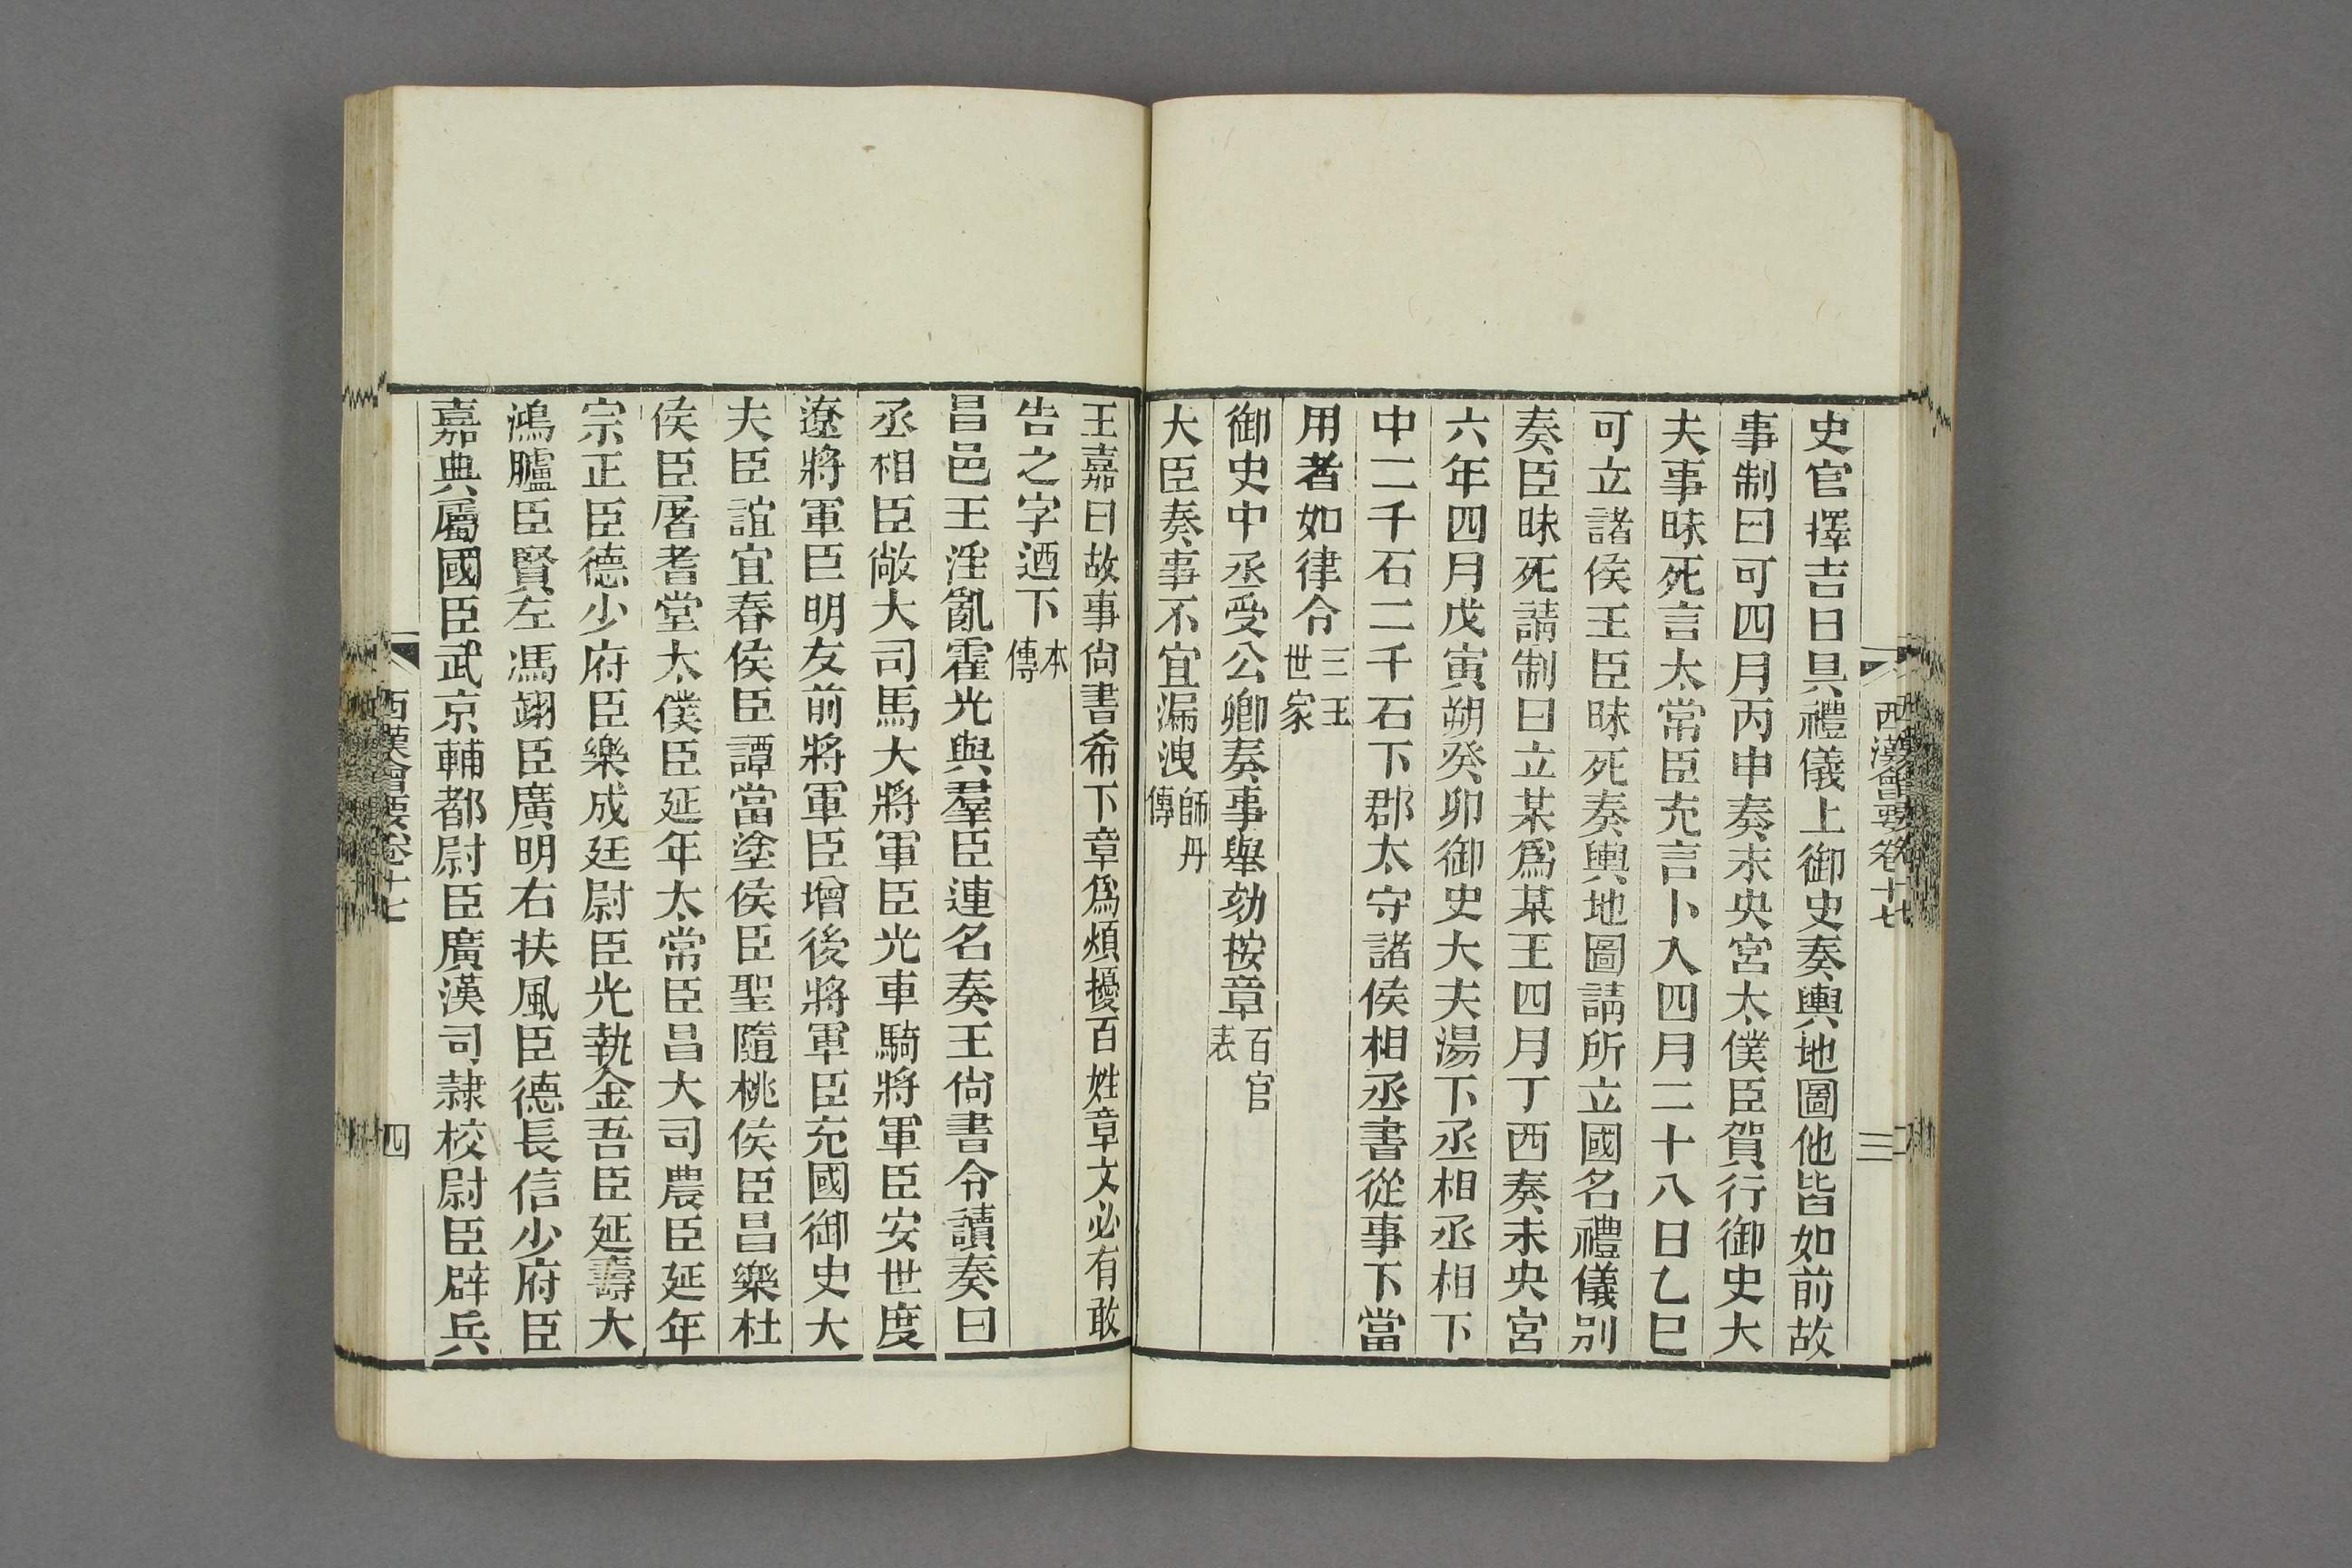 西漢會要卷十七
三
史官擇吉日具禮儀上御史奏輿地圖他皆如前故
事制曰可四月丙申奏未央宮太僕臣賀行御史大
夫事昧死言太常臣充言卜入四月二十八日乙巳
可立諸侯王臣昧死奏輿地圖請所立國名禮儀別
奏臣昧死請制曰立某爲某王四月丁酉奏未央宮
六年四月戊寅朔癸卯御史大夫湯下丞相丞相下
中二千石二千石下郡太守諸侯相丞書從事下當
用者如律令三王世家
御史中丞受公卿奏事舉劾按章百官表
大臣奏事不宜漏洩師丹傳
王嘉曰故事尙書希下章爲煩擾百姓章文必有敢
告之字迺下本傳
昌邑王淫亂霍光與羣臣連名奏王尙書令讀奏曰
丞相臣敞大司馬大將軍臣光車騎將軍臣安世度
遼將軍臣明友前將軍臣增後將軍臣充國御史大
夫臣誼宜春侯臣譚當塗侯臣聖隨桃侯臣昌樂杜
侯臣屠耆堂太僕臣延年太常臣昌大司農臣延年
宗正臣德少府臣樂成廷尉臣光執金吾臣延壽大
鴻臚臣賢左馮翊臣廣明右扶風臣德長信少府臣
嘉典屬國臣武京輔都尉臣廣漢司隷校尉臣辟兵
西漢會要卷十七
四